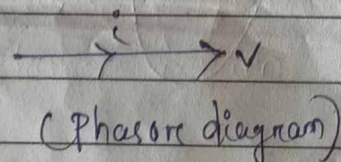 i
v
(Phasore diagram)